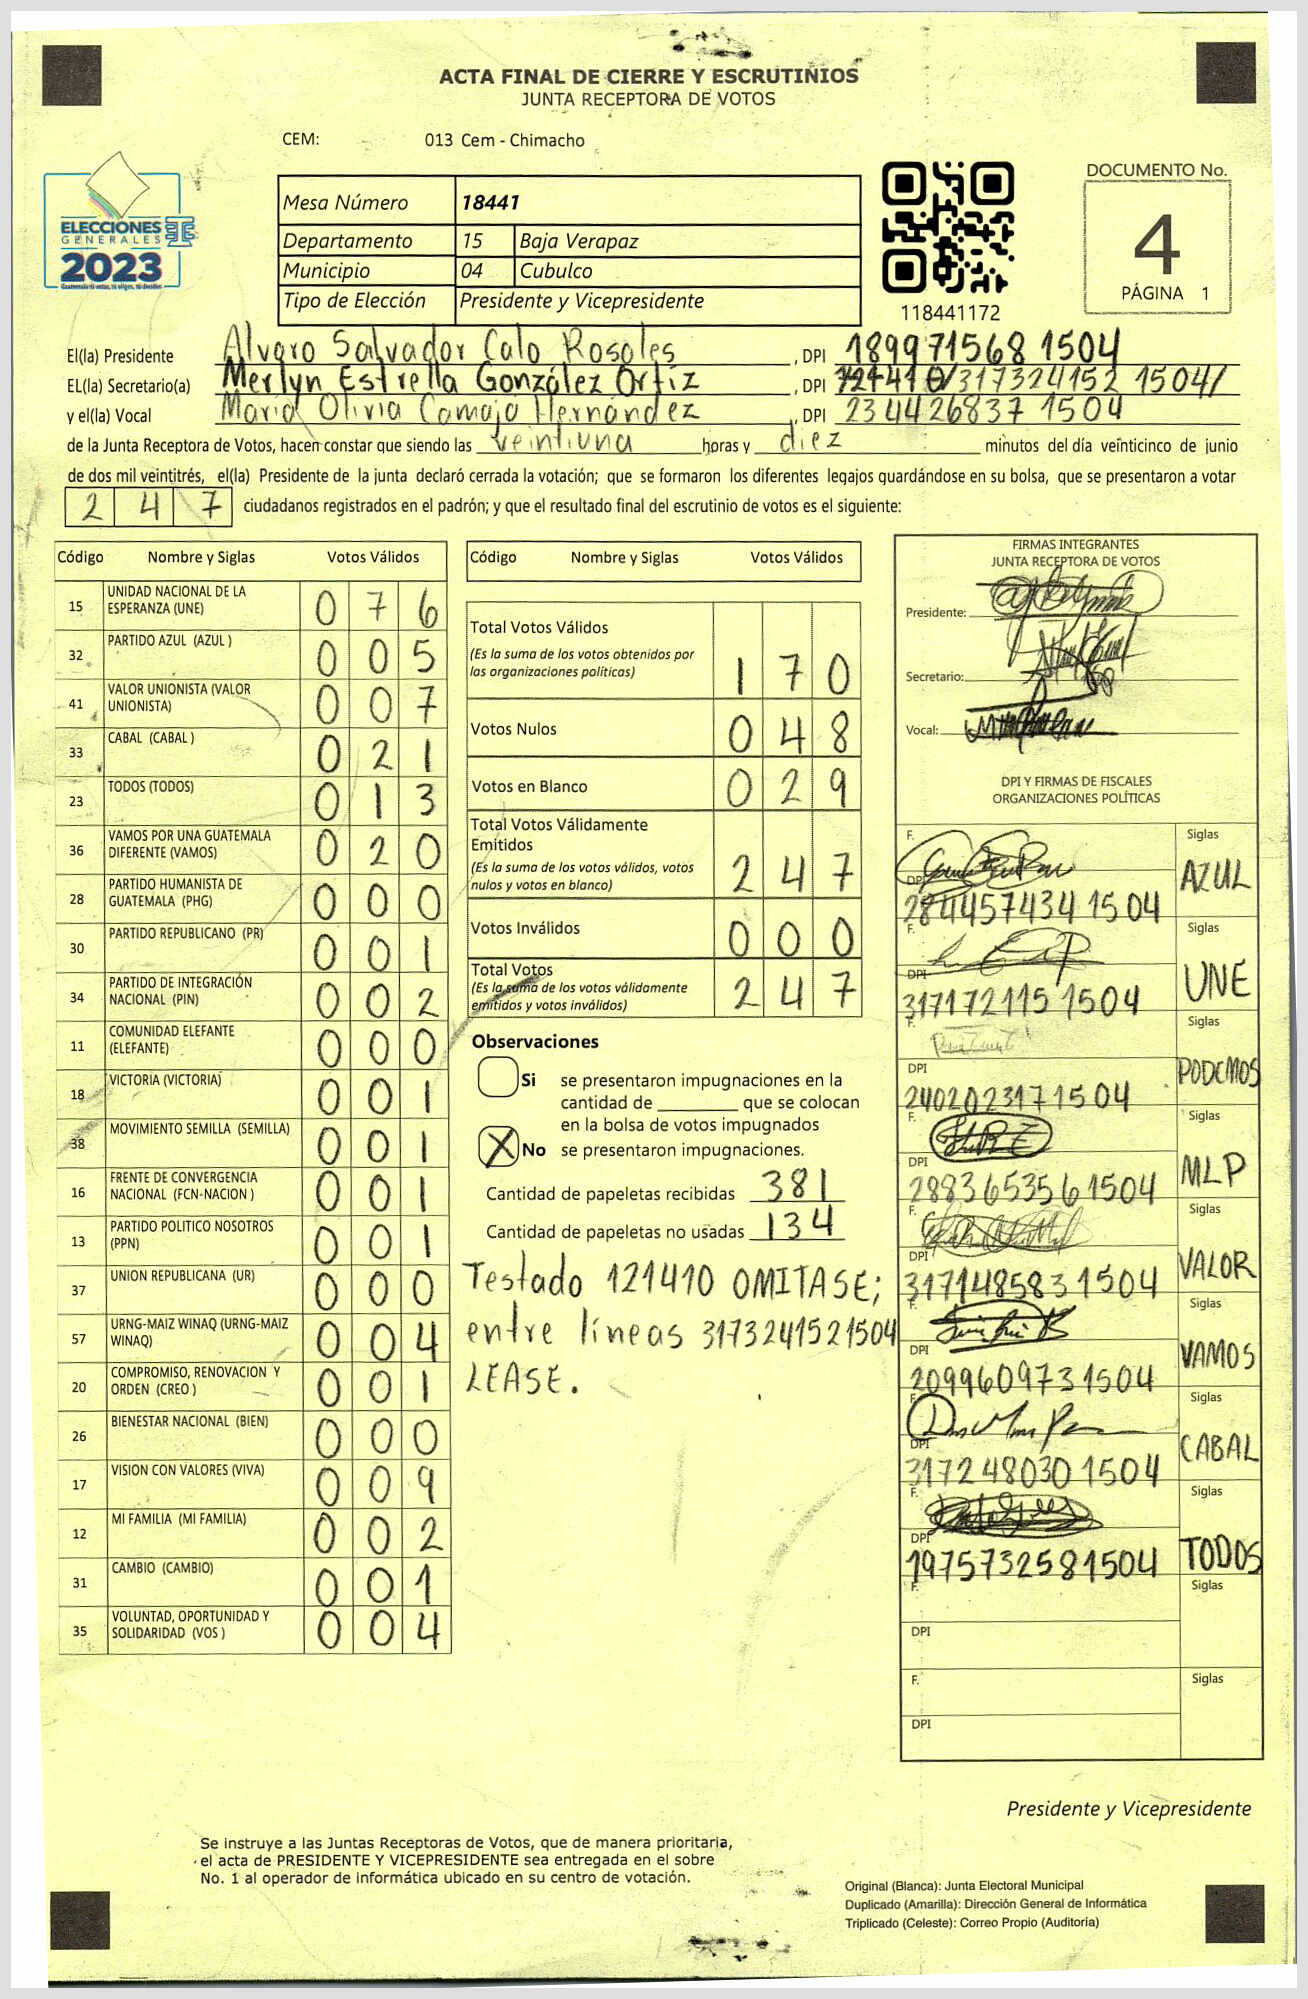 ACTA FINAL DE CIERRE Y ESCRUTINIOS
JUNTA RECEPTORA DE VOTOS
CEM: 013 Cem - Chimacho
ELECCIONES
GENERALES
2023
Mesa Número 18441
Departamento 15 Baja Verapaz
Municipio 04 Cubulco
Tipo de Elección Presidente y Vicepresidente
118441172
DOCUMENTO No.
4
PÁGINA 1
El(la) Presidente Alvaro Salvador Calo Rosales, DPI 189971568 1504
EL(la) Secretario(a) Merlyn Estrella González Ortiz, DPI /317324152 1504/
y el(la) Vocal María Olivia Camajá Hernández, DPI 234426837 1504
de la Junta Receptora de Votos, hacen constar que siendo las veintiuna horas y diez minutos del día veinticinco de junio
de dos mil veintitrés, el(la) Presidente de la junta declaró cerrada la votación; que se formaron los diferentes legajos guardándose en su bolsa, que se presentaron a votar
2 4 7 ciudadanos registrados en el padrón; y que el resultado final del escrutinio de votos es el siguiente:
Código Nombre y Siglas Votos Válidos
15 UNIDAD NACIONAL DE LA ESPERANZA (UNE) 0 7 6
32 PARTIDO AZUL (AZUL ) 0 0 5
41 VALOR UNIONISTA (VALOR UNIONISTA) 0 0 7
33 CABAL (CABAL ) 0 2 1
23 TODOS (TODOS) 0 1 3
36 VAMOS POR UNA GUATEMALA DIFERENTE (VAMOS) 0 2 0
28 PARTIDO HUMANISTA DE GUATEMALA (PHG) 0 0 0
30 PARTIDO REPUBLICANO (PR) 0 0 1
34 PARTIDO DE INTEGRACIÓN NACIONAL (PIN) 0 0 2
11 COMUNIDAD ELEFANTE (ELEFANTE) 0 0 0
18 VICTORIA (VICTORIA) 0 0 1
38 MOVIMIENTO SEMILLA (SEMILLA) 0 0 1
16 FRENTE DE CONVERGENCIA NACIONAL (FCN-NACION ) 0 0 1
13 PARTIDO POLITICO NOSOTROS (PPN) 0 0 1
37 UNION REPUBLICANA (UR) 0 0 0
57 URNG-MAIZ WINAQ (URNG-MAIZ WINAQ) 0 0 4
20 COMPROMISO, RENOVACION Y ORDEN (CREO ) 0 0 1
26 BIENESTAR NACIONAL (BIEN) 0 0 0
17 VISION CON VALORES (VIVA) 0 0 9
12 MI FAMILIA (MI FAMILIA) 0 0 2
31 CAMBIO (CAMBIO) 0 0 1
35 VOLUNTAD, OPORTUNIDAD Y SOLIDARIDAD (VOS ) 0 0 4
Código Nombre y Siglas Votos Válidos
Total Votos Válidos
(Es la suma de los votos obtenidos por
las organizaciones políticas) 1 7 0
Votos Nulos 0 4 8
Votos en Blanco 0 2 9
Total Votos Válidamente
Emitidos
(Es la suma de los votos válidos, votos
nulos y votos en blanco) 2 4 7
Votos Inválidos 0 0 0
Total Votos
(Es la suma de los votos válidamente
emitidos y votos inválidos) 2 4 7
Observaciones
Si se presentaron impugnaciones en la
cantidad de ________ que se colocan
en la bolsa de votos impugnados
X No se presentaron impugnaciones.
Cantidad de papeletas recibidas 381
Cantidad de papeletas no usadas 134
Testado 121410 OMITASE;
entre líneas 3173241521504
LEASE.
FIRMAS INTEGRANTES
JUNTA RECEPTORA DE VOTOS
Presidente:
Secretario:
Vocal:
DPI Y FIRMAS DE FISCALES
ORGANIZACIONES POLÍTICAS
F. Siglas
DPI 284457434 1504 AZUL
F. Siglas
DPI 317172115 1504 UNE
F. Siglas
DPI 240202317 1504 PODEMOS
F. Siglas
DPI 288365356 1504 MLP
F. Siglas
DPI 317148583 1504 VALOR
F. Siglas
DPI 209960973 1504 VAMOS
F. Siglas
DPI 317248030 1504 CABAL
F. Siglas
DPI 197573258 1504 TODOS
F. Siglas
DPI
F. Siglas
DPI
Presidente y Vicepresidente
Se instruye a las Juntas Receptoras de Votos, que de manera prioritaria,
el acta de PRESIDENTE Y VICEPRESIDENTE sea entregada en el sobre
No. 1 al operador de informática ubicado en su centro de votación.
Original (Blanca): Junta Electoral Municipal
Duplicado (Amarilla): Dirección General de Informática
Triplicado (Celeste): Correo Propio (Auditoría)